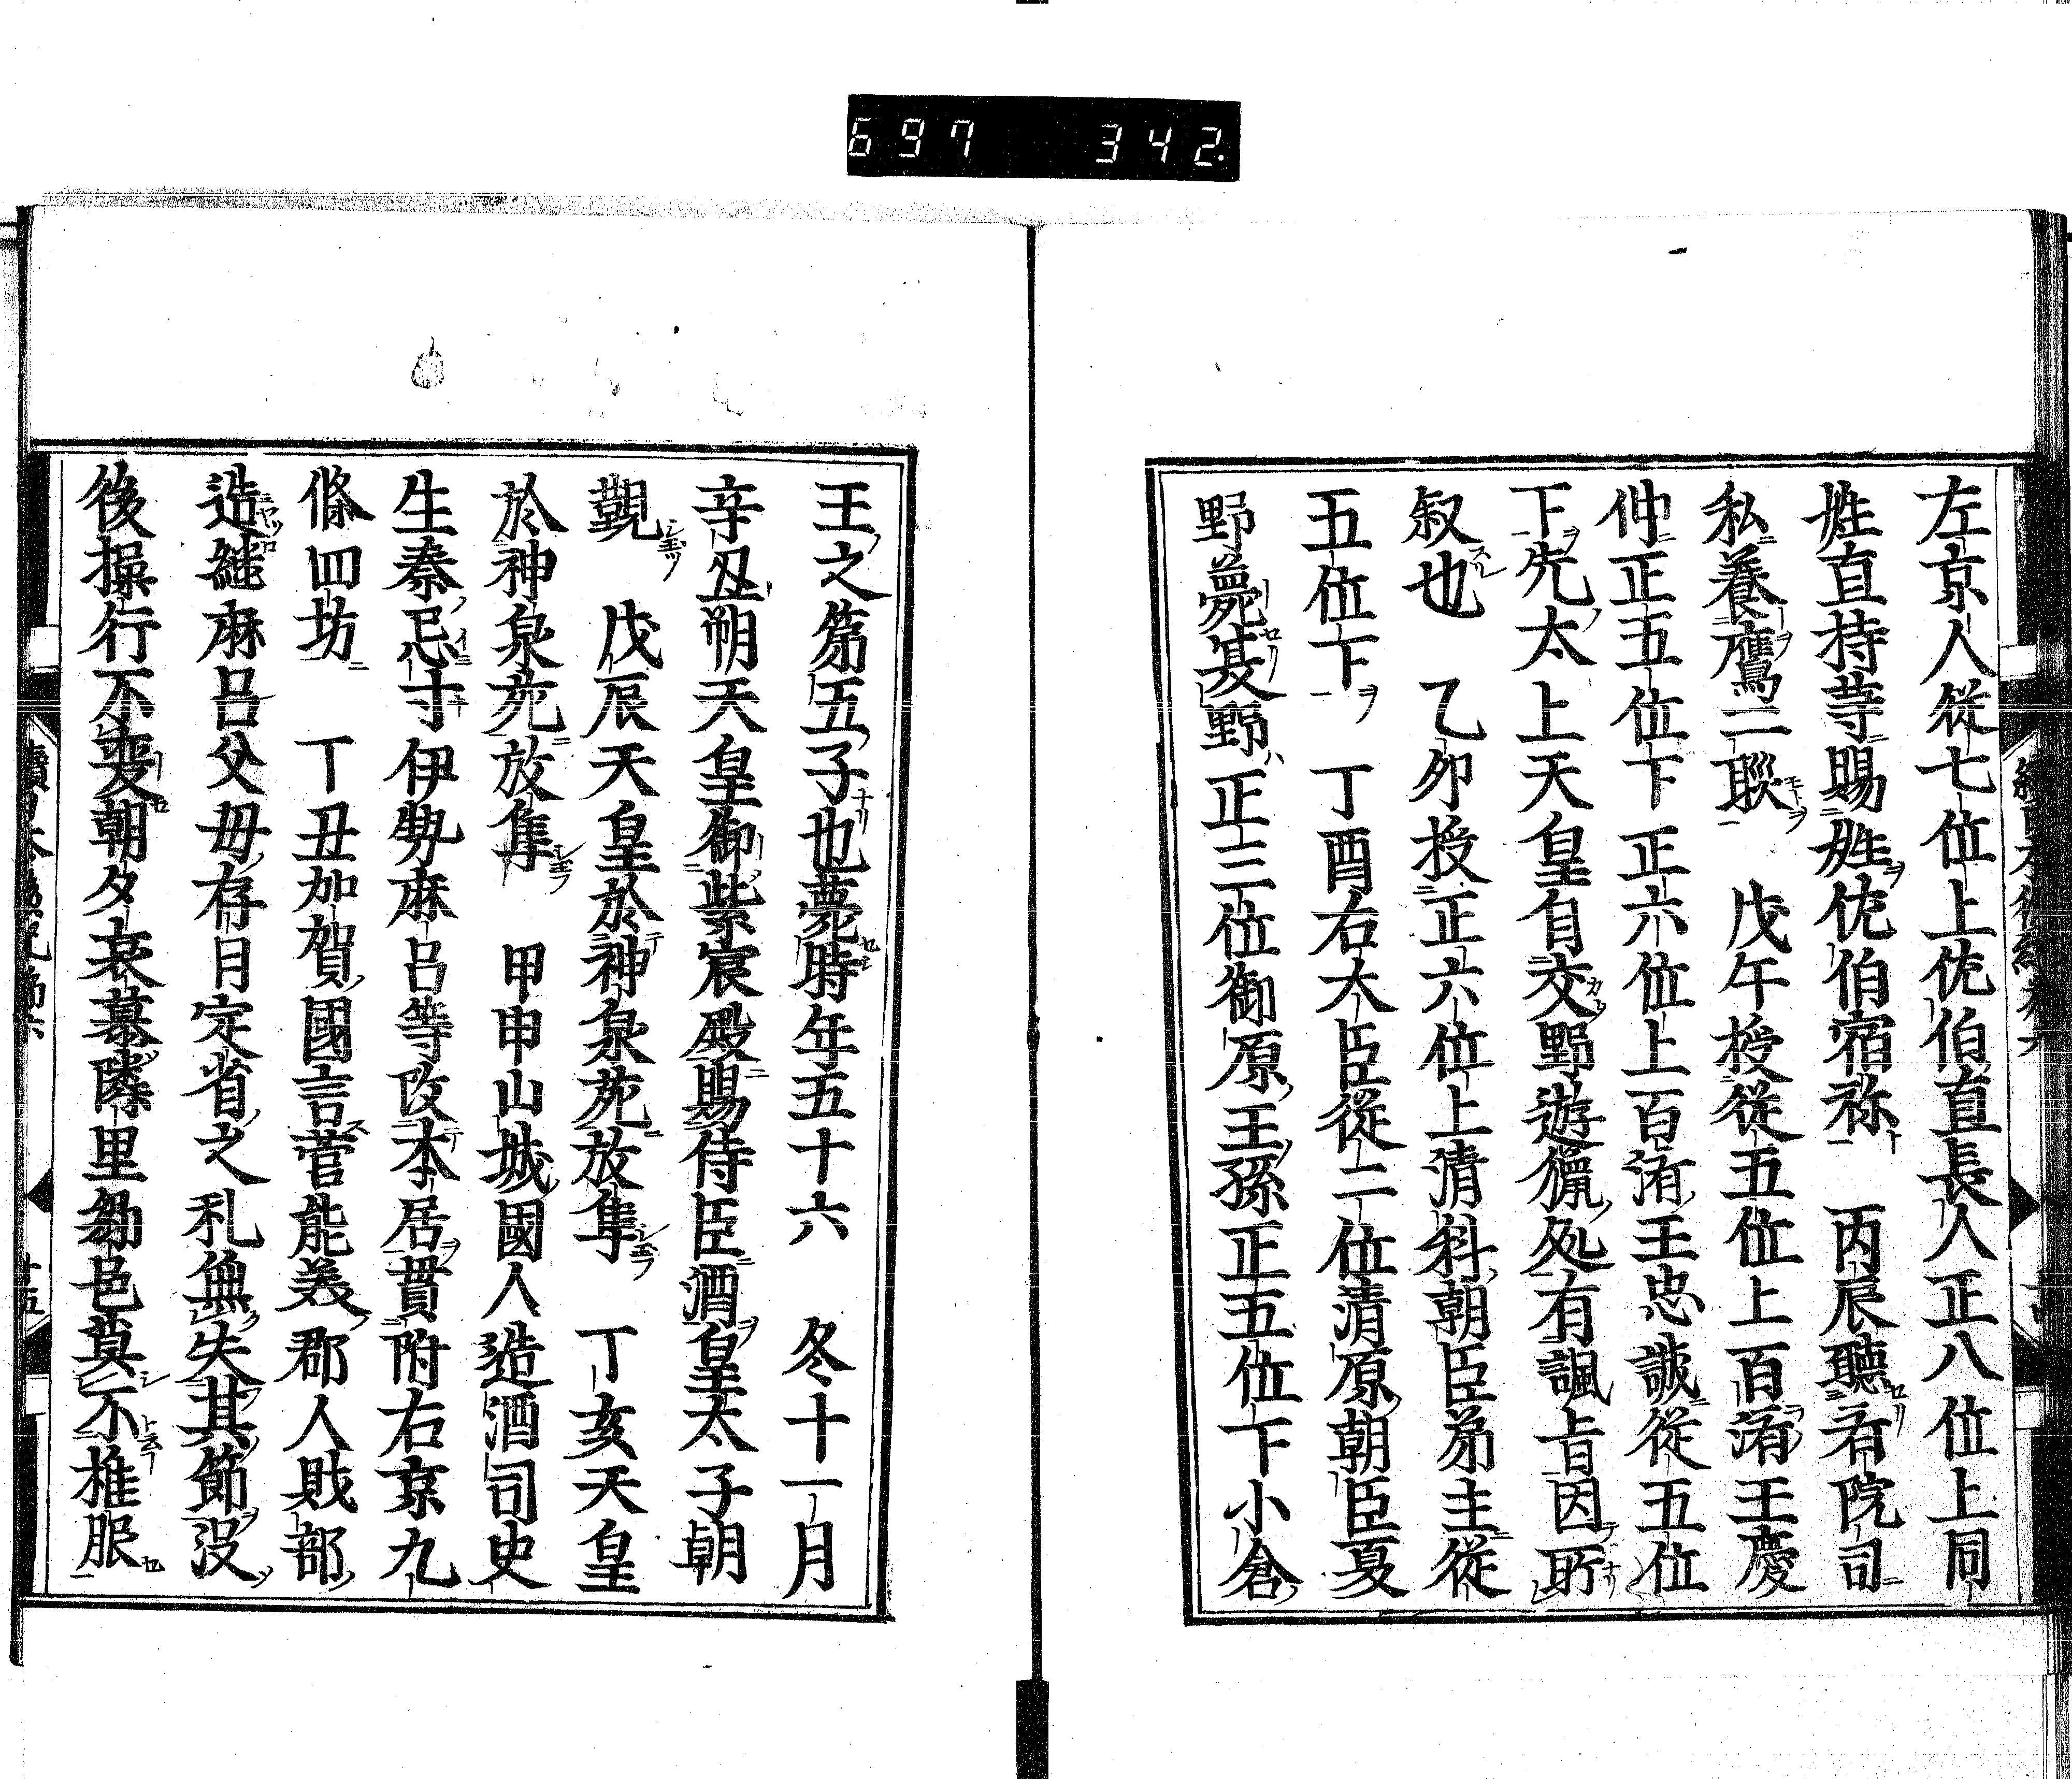 697 342.
左京人從七位上佐伯直長人正八位上同
姓直持䒭賜姓佐伯宿祢 丙辰聽㸔院司
私養鷹二聯 戊午授從五位上百濟王慶
仲正五位下正六位上百濟王忠誠從五位
下先太上天皇自交野遊獵処有諷旨因所
叙也 乙卯授正六位上清科朝臣弟主從
五位下 丁酉右大臣從二位清原朝臣夏
野薨夏野正三位御原王孫正五位下小倉
王之第五子也薨時年五十六 冬十一月
辛丑朔天皇御紫宸殿賜侍臣酒皇太子朝
覲 戊辰天皇於神泉苑放隼 丁亥天皇
於神泉苑放隼 甲申山城國人造酒司史
生秦忌寸伊勢麻呂等改本居貫附右京九
條四坊 丁丑加賀國言管能美郡人財部
造継麻呂父母存日定省之礼無失其節没
後操行不変朝夕哀慕隣里芻邑莫不推服